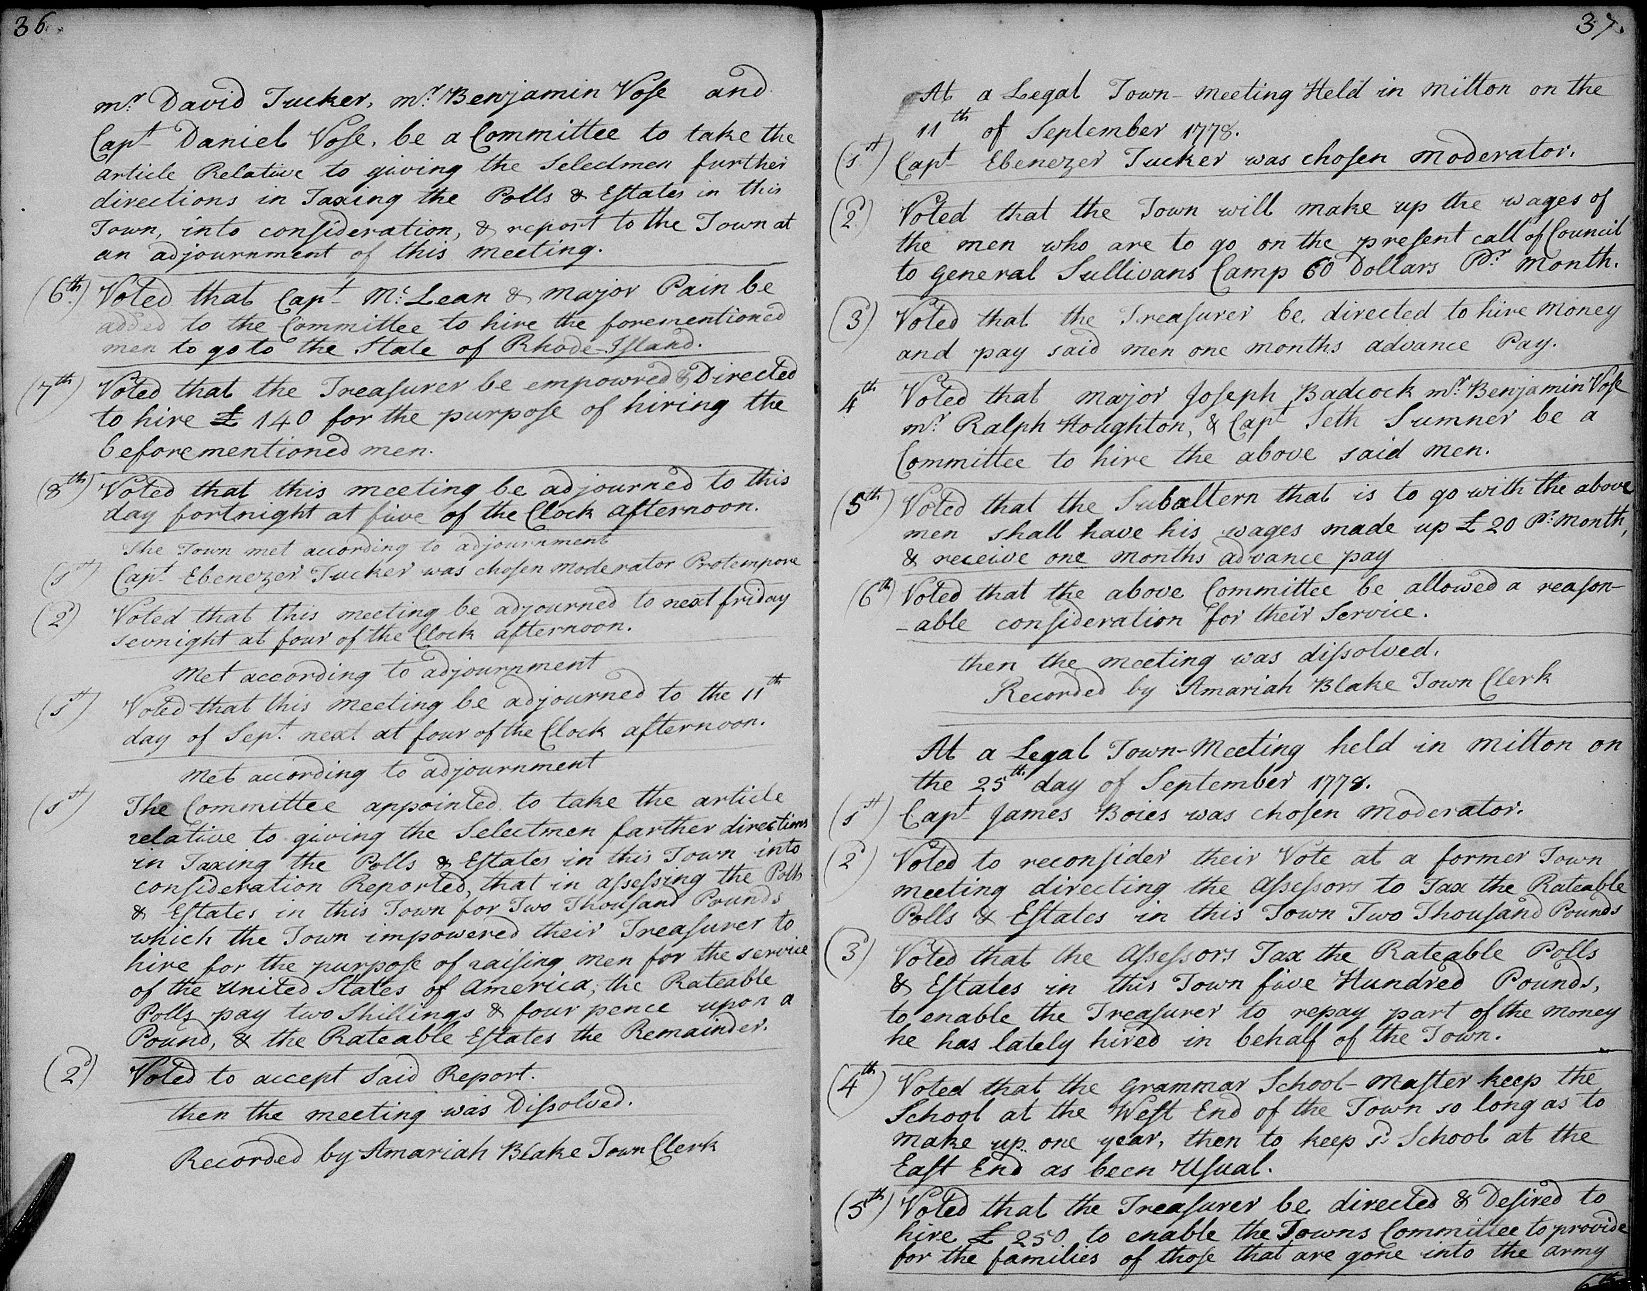 36.
mr. David Tucker, mr. Benjamin Vose and
Capt Daniel Vose, be a Committee to take the
article Relative to giving the Selectmen further
directions in Taxing the Polls & Estates in this
Town, into consideration, & report to the Town at
an adjournment of this meeting.
(6th) Voted that Capt McLean & major Pain be
added to the Committee to hire the forementioned
men to go to the State of Rhode-Island.
(7th) Voted that the Treasurer be empowred & Directed
to hire £ 140 for the purpose of hiring the
beforementioned men.
(8th) Voted that this meeting be adjourned to this
day fortnight at five of the Clock afternoon.
The Town met according to adjournment
(1st) Capt. Ebenezer Tucker was chosen moderator Protempore
(2d) Voted that this meeting be adjourned to next friday
sevnight at four of the Clock afternoon.
Met according to adjournment
(1st) Voted that this meeting be adjourned to the 11th
day of Sept. next at four of the Clock afternoon.
Met according to adjournment
(1st) The Committee appointed to take the article
relative to giving the Selectmen farther directions
in Taxing the Polls & Estates in this Town into
consideration Reported, that in assessing the Polls
& Estates in this Town for Two Thousand Pounds
which the Town impowered their Treasurer to
hire for the purpose of raising men for the service
of the United States of America, the Rateable
Polls pay two Shillings & four pence upon a
Pound, & the Rateable Estates the Remainder.
(2d) Voted to accept Said Report.
then the meeting was Dissolved.
Recorded by Amariah Blake Town Clerk
37.
At a Legal Town-meeting Held in milton on the
11th of September 1778.
(1st) Capt Ebenezer Tucker was chosen moderator.
(2d) Voted that the Town will make up the wages of
the men who are to go on the present call of Council
to general Sullivans Camp 60 Dollars Pr month.
(3d) Voted that the Treasurer be directed to hire money
and pay said men one months advance Pay.
4th Voted that major Joseph Badcock mr. Benjamin Vose
mr. Ralph Houghton, & Capt Seth Sumner be a
Committee to hire the above said men.
(5th) Voted that the Subaltern that is to go with the above
men shall have his wages made up £ 20 Pr month,
& receive one months advance pay
(6th) Voted that the above Committee be allowed a reason-
-able consideration for their Service.
then the meeting was dissolved.
Recorded by Amariah Blake Town Clerk
At a Legal Town-Meeting held in milton on
the 25th day of September 1778.
(1st) Capt James Boies was chosen moderator.
(2d) Voted to reconsider their Vote at a former Town
meeting directing the Assessors to Tax the Rateable
Polls & Estates in this Town Two Thousand Pounds
(3d) Voted that the Assessors Tax the Rateable Polls
& Estates in this Town five Hundred Pounds,
to enable the Treasurer to repay part of the money
he has lately hired in behalf of the Town.
(4th) Voted that the Grammar School-master keep the
School at the West End of the Town so long as to
make up one year, then to keep sd. School at the
East End as been Usual.
(5th) Voted that the Treasurer be directed & Desired to
hire £ 250 to enable the Towns Committee to provide
for the families of those that are gone into the army
6th